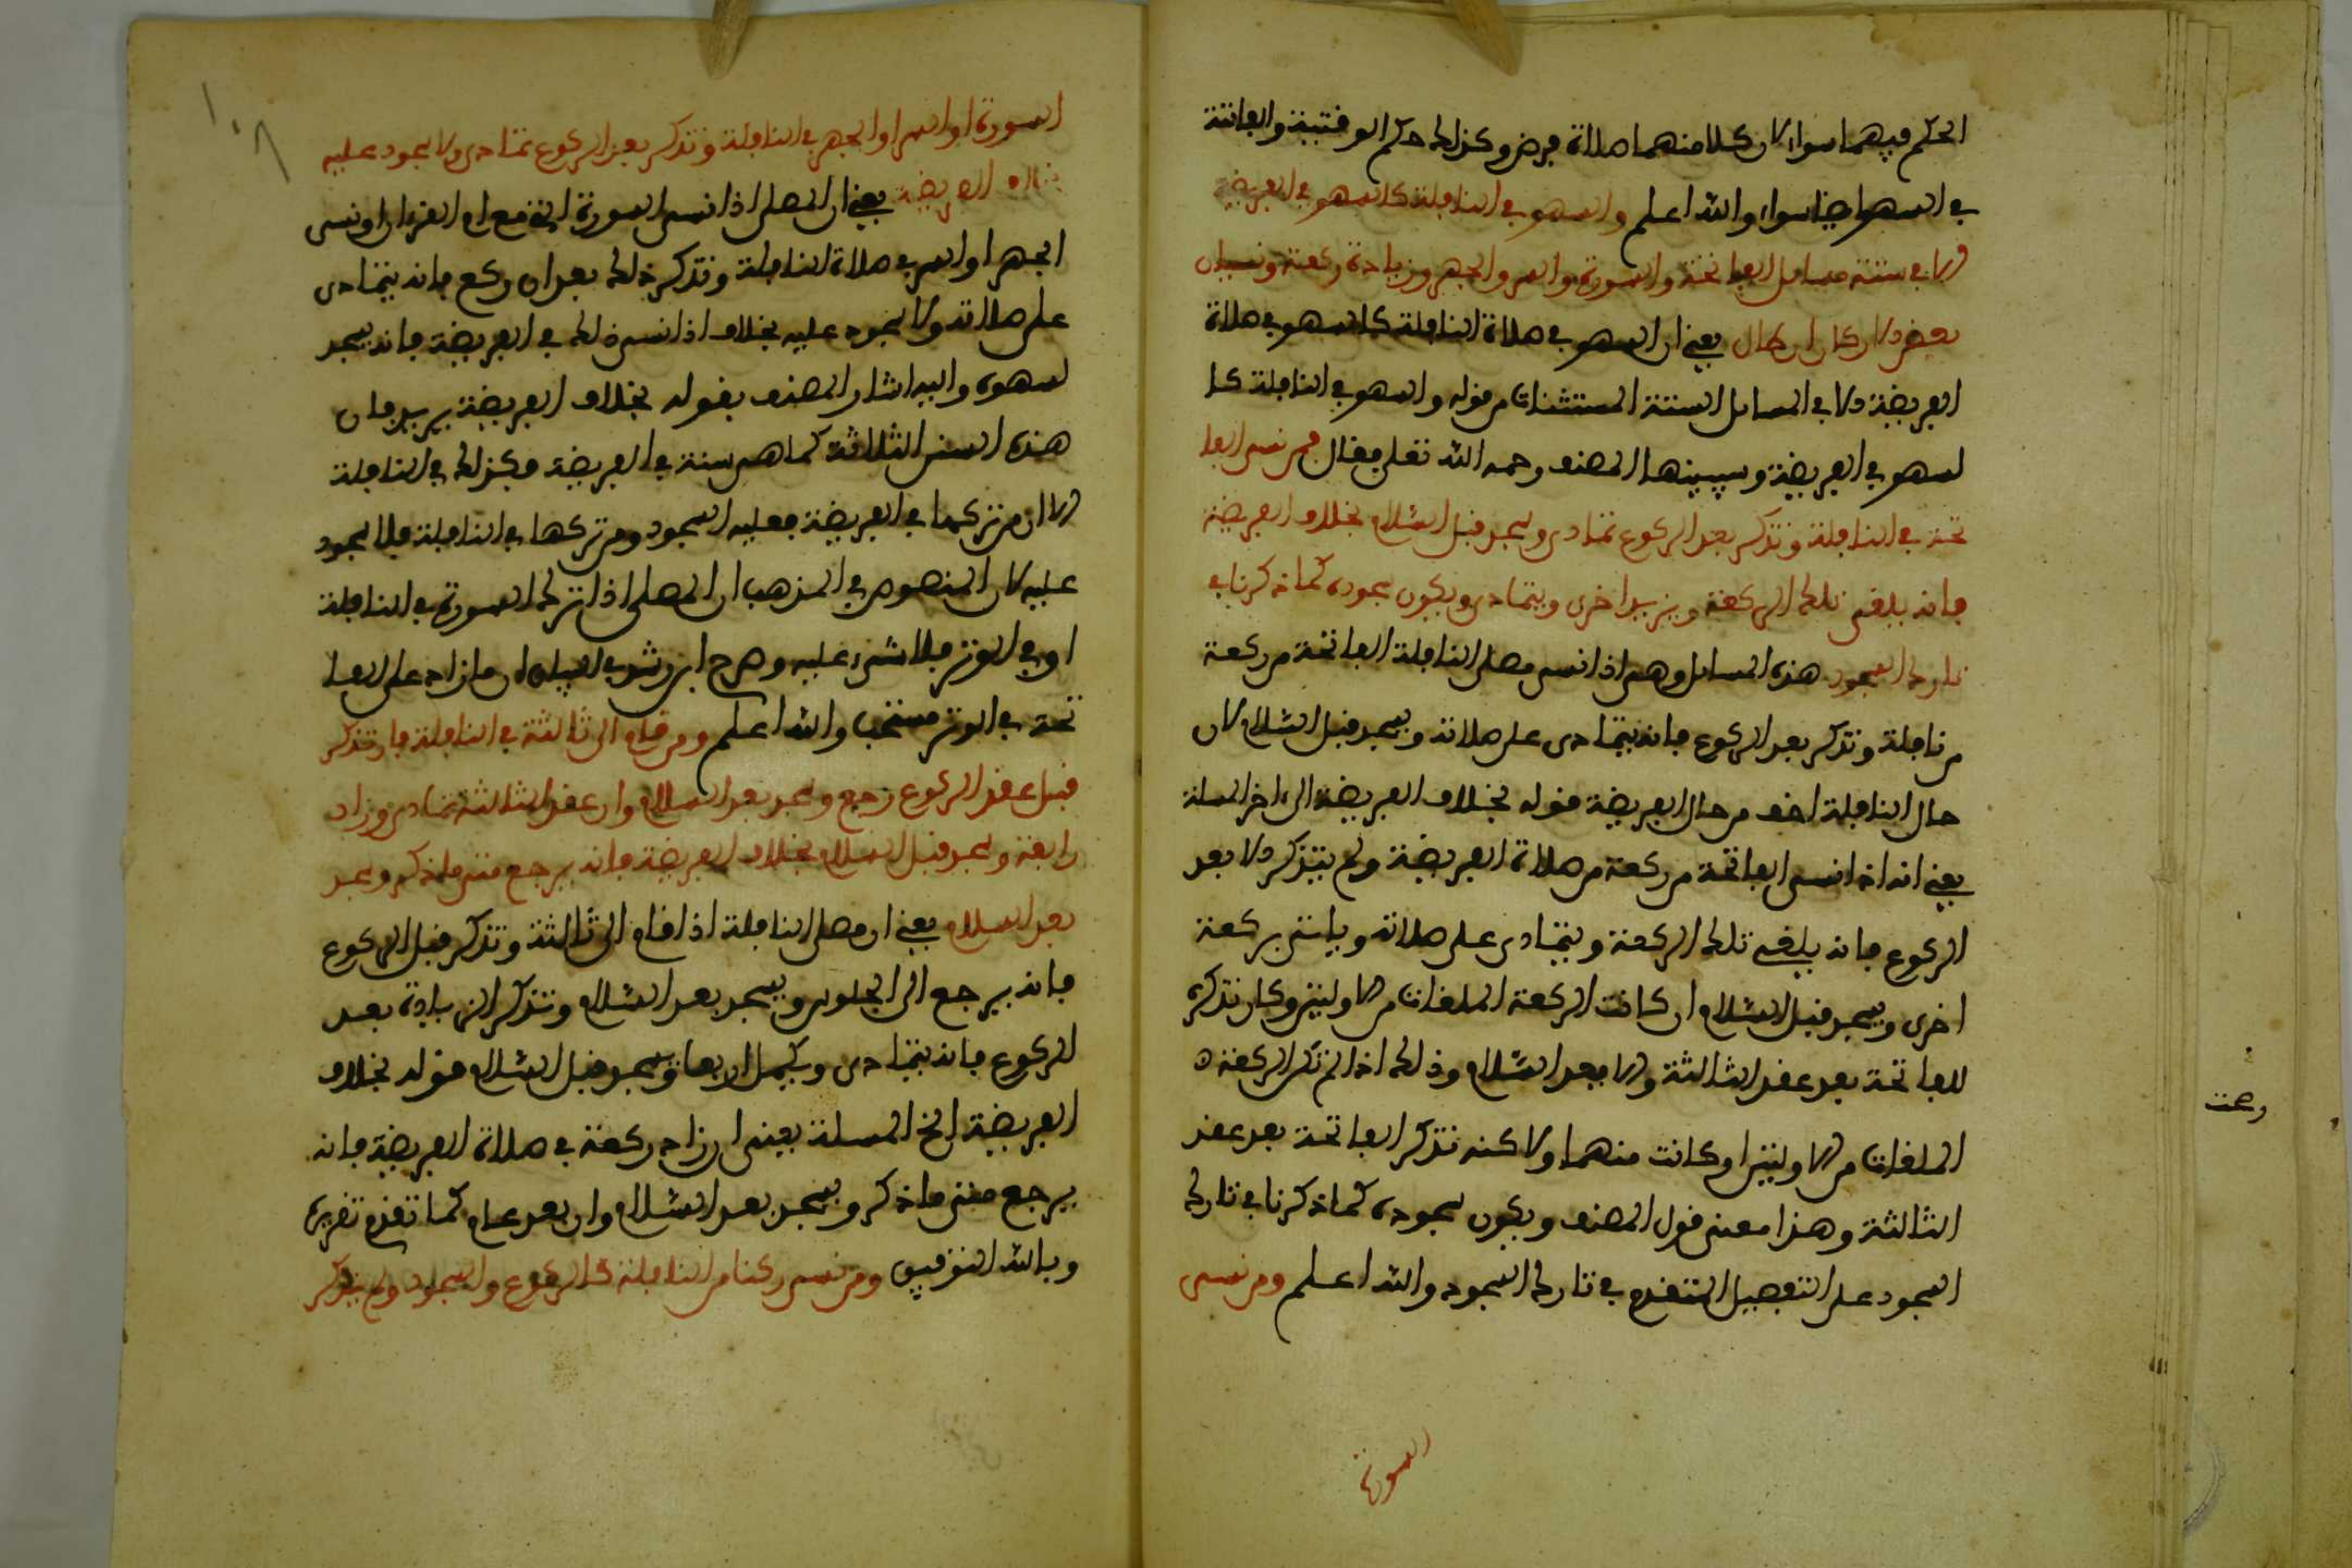 الحكم فيهما سواء لان كلا منهما صلاة فرض وكذلك حكم الوقتية والفائتة
في السهو ايضا سواء والله اعلم والسهو في النافلة كالسهو في الفريضة
الا في ستة مسائل الفاتحة والسورة والسر والجهر وزيادة ركعة ونسيان
بعض الاركان ان طال يعني ان السهو في صلاة النافلة كالسهو في صلاة
الفريضة الا في المسائل الستة المستثنات من قوله والسهو في النافلة كا
لسهو في الفريضة وسيبينها المصنف رحمه الله تعلى فقال فمن نسي الفا
تحة في النافلة وتذكر بعد الركوع تمادى وسجد قبل السلام بخلاف الفريضة
فانه يلغي تلك الركعة ويزيد اخرى ويتمادى ويكون سجوده كما ذكرنا في
تارك السجود هذه المسائل وهي اذا نسي مصلي النافلة الفاتحة من ركعة
من نافلة وتذكر بعد الركوع فانه يتمادى على صلاته ويسجد قبل السلام لان
حال النافلة اخف من حال الفريضة قوله بخلاف الفريضة الى اخر المسلة
يعني انه اذا نسي الفاتحة من ركعة من صلاة الفريضة ولم يتذكر الا بعد
الركوع فانه يلغي تلك الركعة ويتمادى على صلاته وياتي بركعة
اخرى ويسجد قبل السلام ان كانت الركعة الملغات من الاوليين وكان تذكره
للفاتحة بعد عقد الثالثة والا فبعد السلام وذلك اذا لم تكن الركعة
الملغات من الاوليين او كانت منهما ولاكنه تذكر الفاتحة بعد عقد
الثالثة وهذا معنى قول المصنف ويكون سجوده كما ذكرنا في تارك
السجود على التفصيل المتقدم في تارك السجود والله اعلم ومن نسي
السورة
١٠٨
السورة او السر او الجهر في النافلة وتذكر بعد الركوع تمادى ولا سجود عليه
بخلاف الفريضة يعني ان المصلي اذا نسي السورة التي مع ام القرءان او نسي
الجهر او السر في صلاة النافلة وتذكر ذلك بعد ان ركع فانه يتمادى
على صلاته ولا سجود عليه بخلاف اذا نسي ذلك في الفريضة فانه يسجد
لسهوه واليه اشار المصنف بقوله بخلاف الفريضة يريد فان
هذه السنن الثلاثة كما هي سنة في الفريضة فكذلك في النافلة
الا ان من تركها في الفريضة فعليه السجود ومن تركها في النافلة فلا سجود
عليه لان المنصوص في المذهب ان المصلي اذا ترك السورة في النافلة
او في الوتر فلا شيء عليه وصرح ابن رشد في البيان ان ما زاد على الفا
تحة في الوتر مستحب والله اعلم ومن قام الى ثالثة في النافلة فان تذكر
قبل عقد الركوع رجع وسجد بعد السلام وان عقد الثالثة تمادى وزاد
رابعة وسجد قبل السلام بخلاف الفريضة فانه يرجع متى ما ذكر ويسجد
بعد السلام يعني ان مصلي النافلة اذا قام الى ثالثة وتذكر قبل الركوع
فانه يرجع الى الجلوس ويسجد بعد السلام وتذكر الزيادة بعد
الركوع فانه يتمادى ويكمل اربعا ويسجد قبل السلام قوله بخلاف
الفريضة الخ المسلة يعني ان زاد ركعة في صلاة الفريضة فانه
يرجع متى ما ذكر ويسجد بعد السلام وان بعد عام كما تقدم تقريره
وبالله التوفيق ومن نسي ركنا من النافلة كالركوع والسجود ولم يتذكر